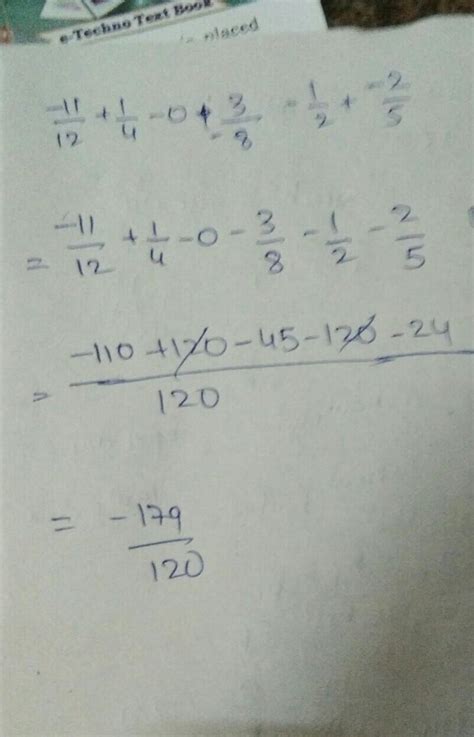 e-Techno Text Book
placed
-11/12 + 1/4 - 0 + 3/-8 - 1/2 + -2/5
= -11/12 + 1/4 - 0 - 3/8 - 1/2 - 2/5
= -110 + 120 - 45 - 120 - 24 / 120
= -179/120